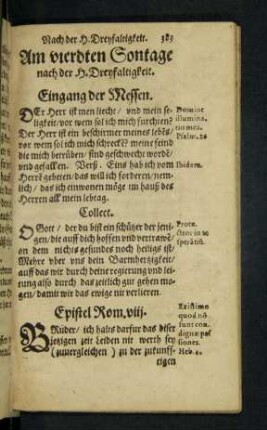 Nach der H. Dreyfaltigkeit. 383
Am vierdten Sontage
nach der H. Dreyfaltigkeit.
Eingang der Messen.
DEr Herr ist mein liecht / vnd mein se-
ligkeit / vor wem sol ich mich furchten?
Der Herr ist ein beschirmer meines lebēs /
vor wem sol ich mich schrecke? meine feind
die mich berüben / sind geschwecht wordē /
vnd gefallen. Verß. Eins hab ich von
Herrē gebeten / das will ich forderen / nem-
lich / das ich einwonen möge im hauß des
Herren all mein lebtag.
Dominⁿ
illumina
tio mea.
Psalm. 26
Ibidem.
Collect.
O Gott / der du bist ein schützer der jeni-
gen / die auff dich hoffen vnd vertrawē /
on dem nichts gesundes noch heiligs ist /
Mehre vber vns dein Barmhertzigkeit /
auff das wir durch deine regierung vnd lei-
tung also durch das zeitlich gut gehen mö-
gen / damit wir das ewige nit verlieren.
Protector in te
sperātiū.
Epistel Rom. viij.
BRüder / ich halts darfur das diser
jetzigen zeit Leiden nit werth sey
(zuuergleichen) zu der zukunff-
tigen
Existimo
quod nō
sunt con-
dignæ pas
siones.